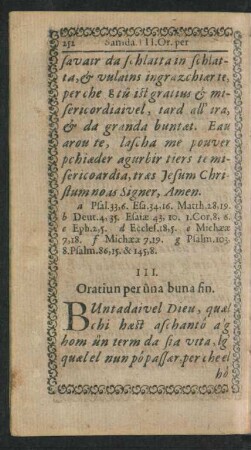 252 Samda. III. Or. per
savair da schlatta in schlat-
ta, & vulains ingrazchiar te,
per che tü ist gratius & mi-
sericordiaivel, tard all' ira,
& da granda buntat. Eau
arou te, lascha me pouver
pchiæder agurbir tiers te mi-
sericoardia, tras Jesum Chri-
stum noas Signer, Amen.
a Psal.33,6. Es.54.16. Matth.28.19.
b Deut.4.35. Esaiæ 43, 10. 1.Cor.8, 6.
c Eph.2,5. d Ecclef.18.5. e Michææ
7,18. f Michææ 7,19. g Psalm.103.
8. Psalm.86,15. & 145,8.
III.
Oratiun per üna buna fin.
BUntadaivel Dieu, quæl
chi hæst aschantô a gl'
hom ün term da sia vita, lg
quæl el nun pô passær, per che el
hô